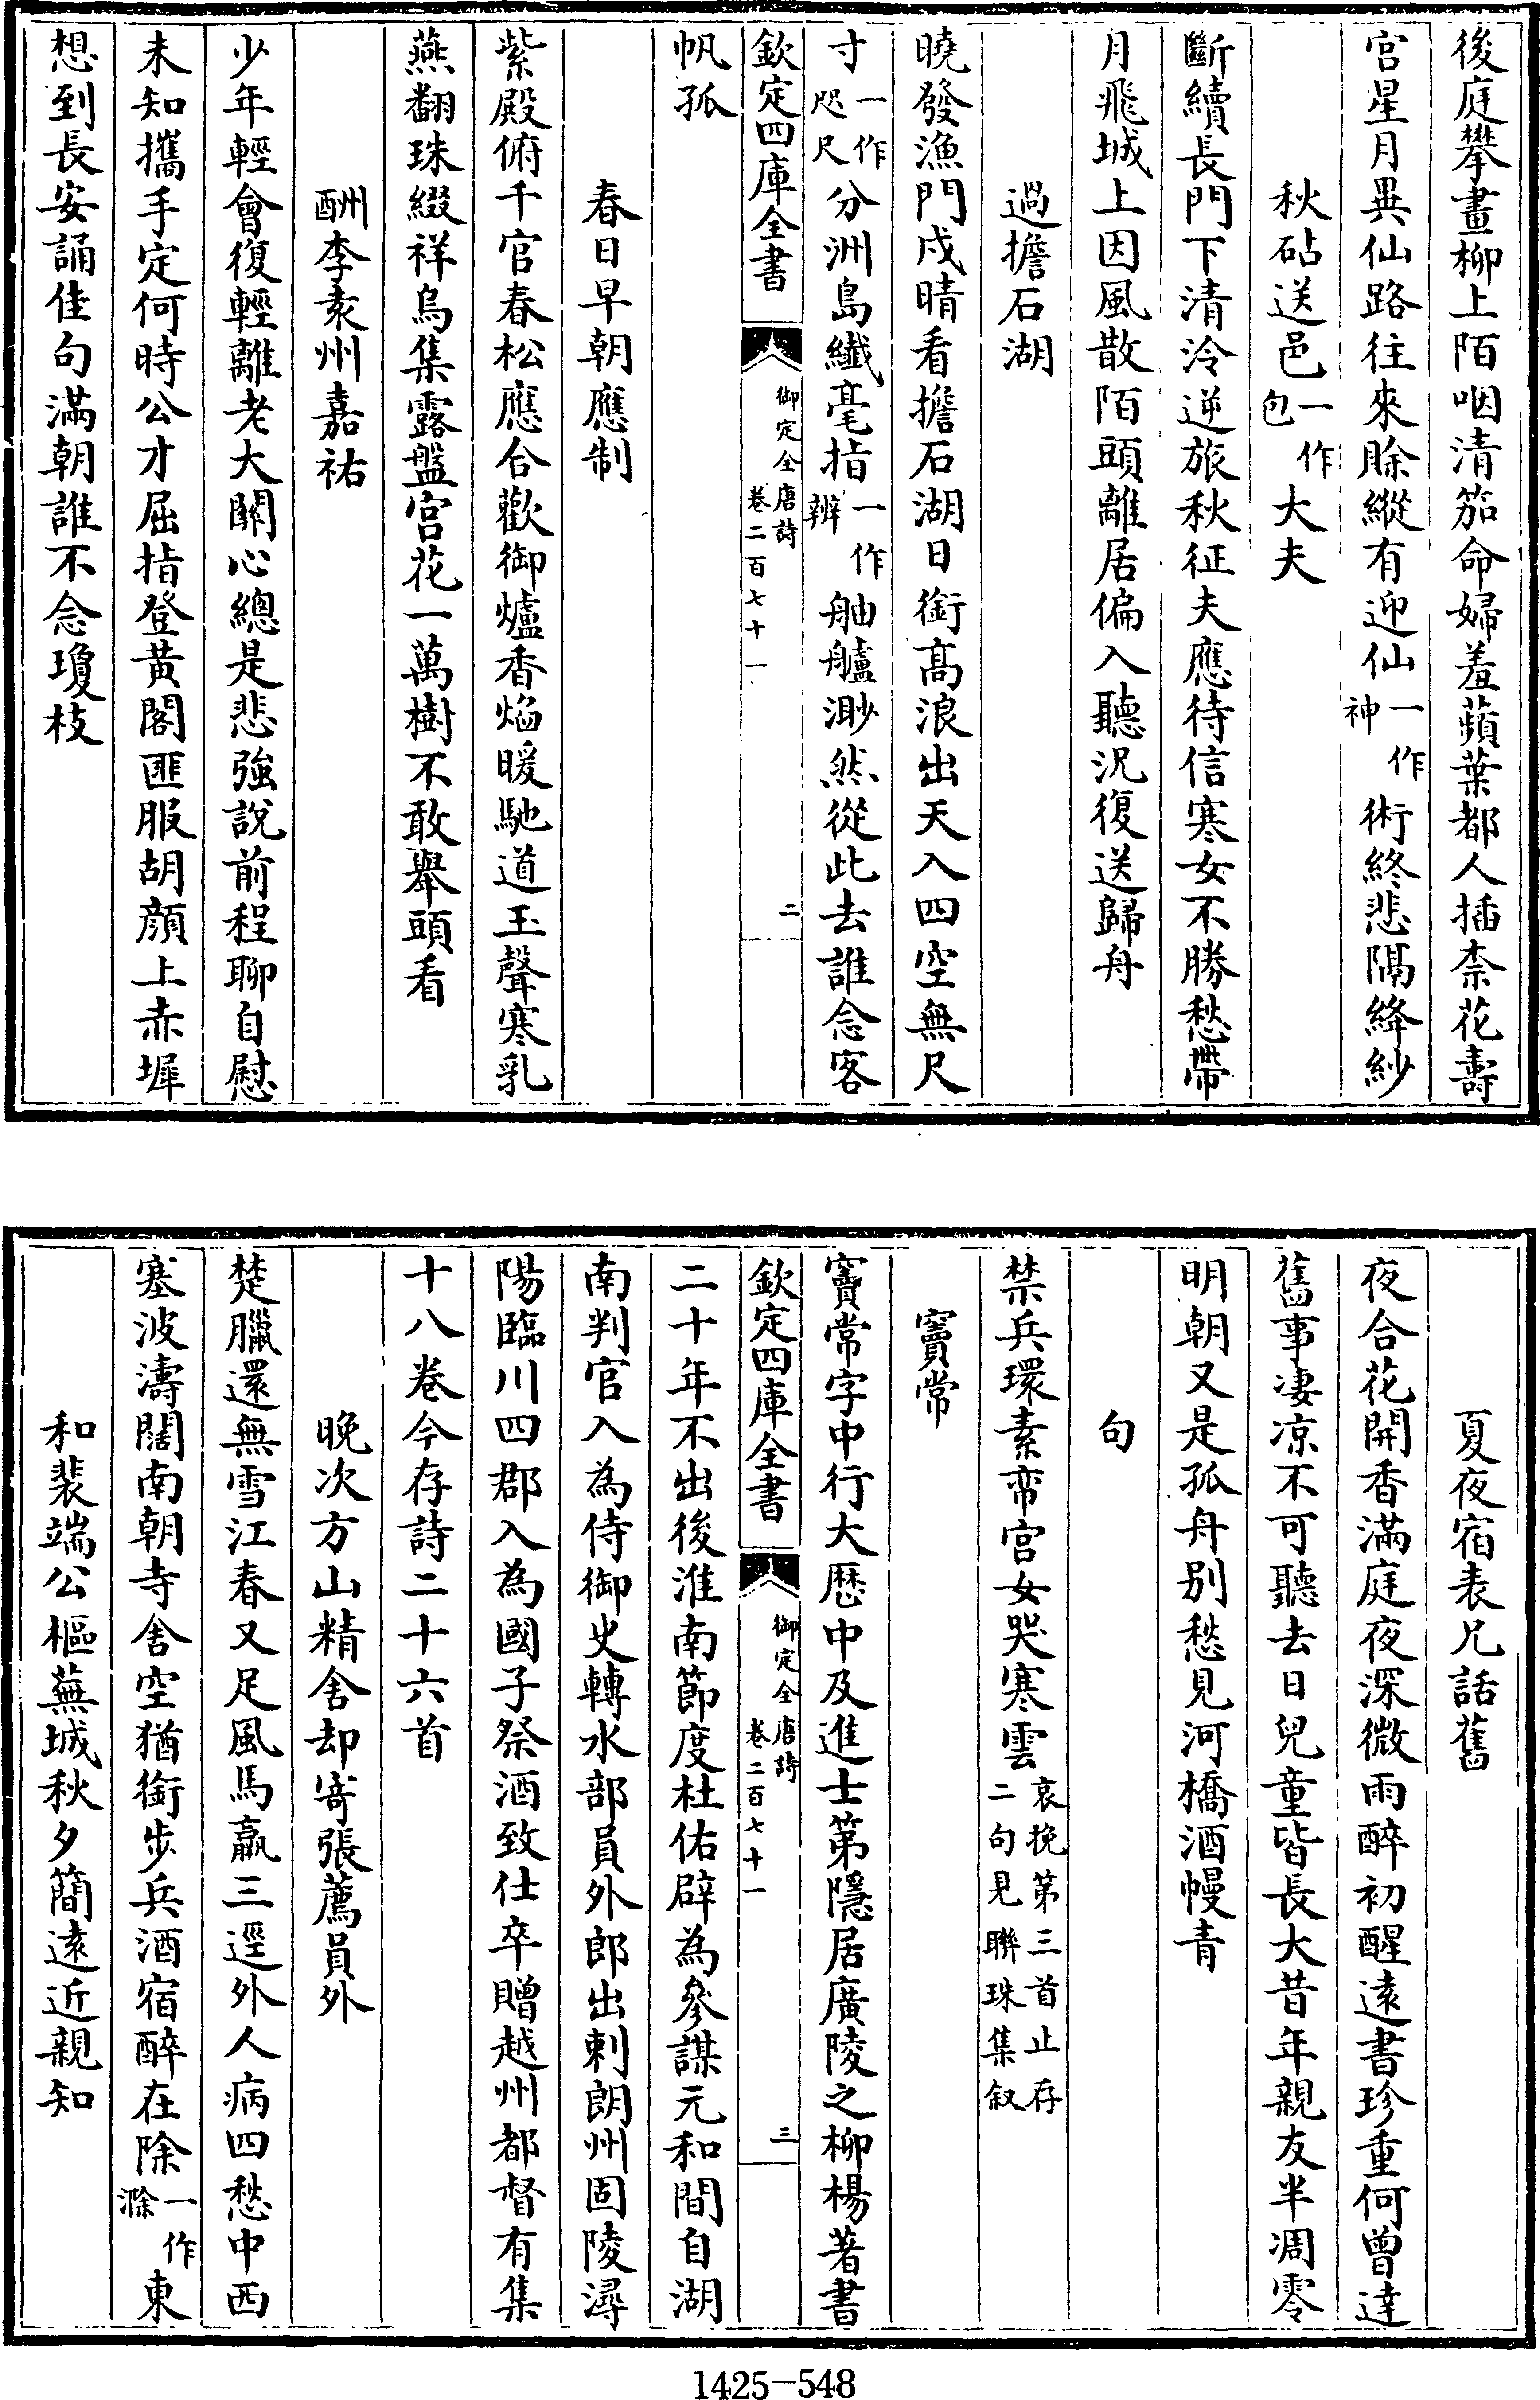 後庭攀畫柳上陌咽清笳命婦羞蘋葉都人插柰花壽
宫星月異仙路往來賒縱有迎仙一作神術終悲隔絳紗
秋砧送邑一作包大夫
斷續長門下清泠逆旅秋征夫應待信寒女不勝愁帶
月飛城上因風散陌頭離居偏入聽況復送歸舟
過擔石湖
曉發漁門戍晴看擔石湖日銜髙浪出天入四空無尺
寸一作咫尺分洲島纎毫指一作辨舳艫渺然從此去誰念客
欽定四庫全書 御定全唐詩 卷二百七十一 二
帆孤
春日早朝應制
紫殿俯千官春松應合歡御爐香焰暖馳道玉聲寒乳
燕翻珠綴祥烏集露盤宫花一萬樹不敢舉頭看
酬李袁州嘉祐
少年輕會復輕離老大關心總是悲強說前程聊自慰
未知攜手定何時公才屈指登黄閣匪服胡顔上赤墀
想到長安誦佳句滿朝誰不念瓊枝
夏夜宿表兄話舊
夜合花開香滿庭夜深微雨醉初醒逺書珍重何曾達
舊事凄凉不可聽去日兒童皆長大昔年親友半凋零
明朝又是孤舟别愁見河橋酒幔青
句
禁兵環素帟宫女哭寒雲哀挽第三首止存二句見聯珠集叙
竇常
竇常字中行大厯中及進士第隱居廣陵之柳楊著書
欽定四庫全書 御定全唐詩 卷二百七十一 三
二十年不出後淮南節度杜佑辟為參謀元和間自湖
南判官入為侍御史轉水部員外郎出刺朗州固陵潯
陽臨川四郡入為國子祭酒致仕卒贈越州都督有集
十八卷今存詩二十六首
晚次方山精舍却寄張薦員外
楚臘還無雪江春又足風馬羸三逕外人病四愁中西
塞波濤闊南朝寺舍空猶銜步兵酒宿醉在除一作滁東
和裴端公樞蕪城秋夕簡逺近親知
1425-548